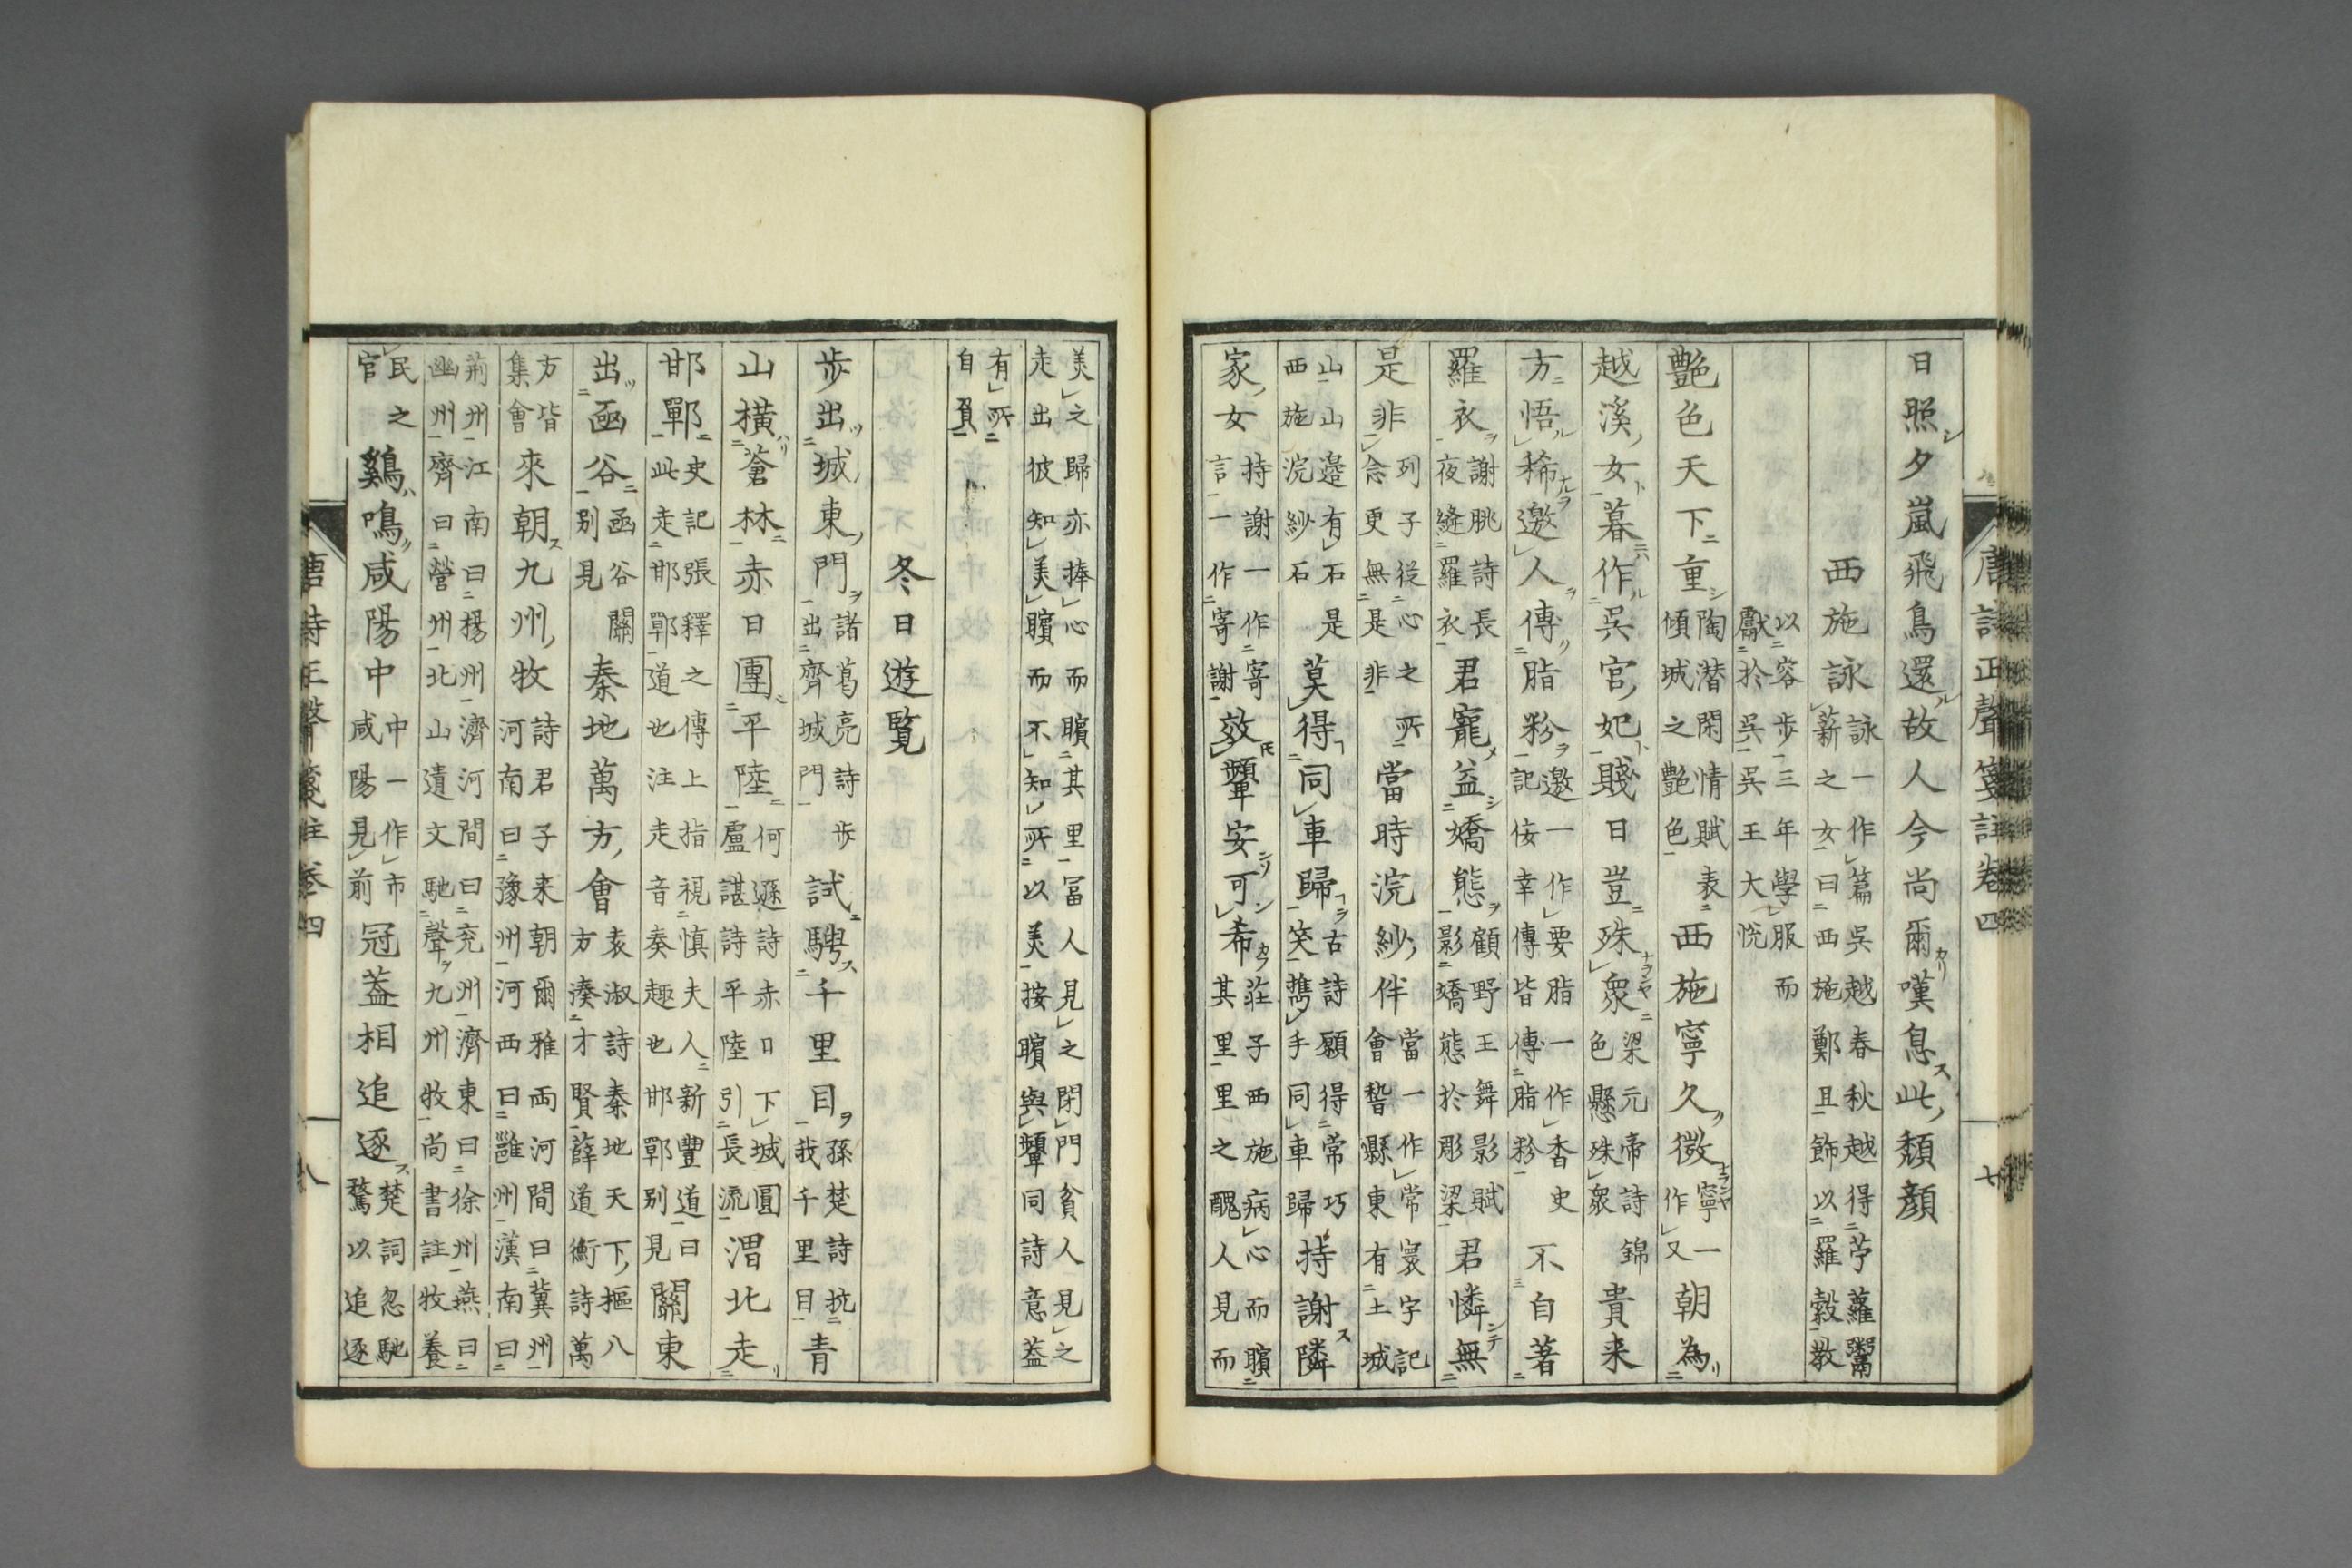 唐詩正聲箋註卷四　七
日照夕嵐飛鳥還故人今尚爾嘆息此頹顏
西施詠詠一作篇吳越春秋越得苧蘿鬻薪之女曰西施鄭旦飾以羅縠教
以容步三年學服而獻於吳吳王大悅
艶色天下重陶潜閑情賦表傾城之艶色西施寧久微寧一作又朝為
越溪女暮作吳宮妃賤日豈殊衆梁元帝詩錦色懸殊衆貴来
方悟稀邀人傳脂粉邀一作要脂一作香史記侫幸傳皆傳脂粉不自著
羅衣謝眺詩長夜縫羅衣君寵益嬌態顧野王舞影賦影嬌態於彫梁君憐無
是非列子従心之所念更無是非當時浣紗伴當一作常寰宇記會稽縣東有土城
山山邉有石是西施浣紗石莫得同車歸古詩願得常巧笑携手同車歸持謝隣
家女持謝一作寄言一作寄謝效顰安可希莊子西施病心而矉其里里之醜人見而
美之歸亦捧心而矉其里冨人見之閉門貧人見之走出彼知美矉而不知所以美按矉與顰同詩意葢
有所自負
冬日遊覧
歩出城東門諸葛亮詩歩出齊城門試騁千里目孫楚詩抗我千里目青
山橫蒼林赤日團平陸何遜詩赤日下城圓盧諶詩平陸引長流渭北走
邯鄲史記張釋之傳上指視慎夫人新豐道曰此走邯鄲道也注走音奏趣也邯鄲別見關東
出函谷函谷關别見秦地萬方會袁淑詩秦地天下樞八方湊才賢薛道衡詩萬
方皆集會來朝九州牧詩君子来朝爾雅両河間曰冀州河南曰豫州河西曰雝州漢南曰
荊州江南曰揚州濟河間曰兗州濟東曰徐州燕曰幽州齊曰營州北山遺文馳聲九州牧尚書註牧養
民之官鷄鳴咸陽中中一作市咸陽見前冠葢相追逐楚詞忽馳騖以追逐
唐詩正聲箋註卷四　八